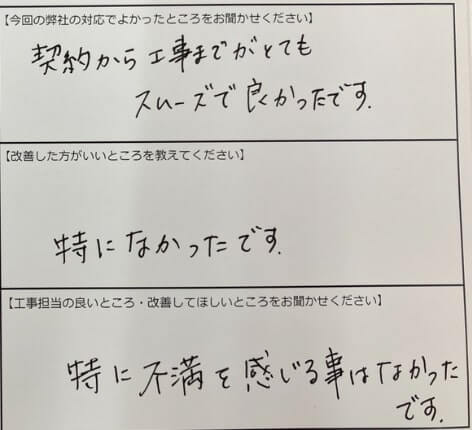 【今回の弊社の対応でよかったところをお聞かせください】
契約から工事までがとても
スムーズで良かったです.
【改善した方がいいところを教えてください】
特になかったです.
【工事担当の良いところ・改善してほしいところをお聞かせください】
特に不満を感じる事はなかった
です.